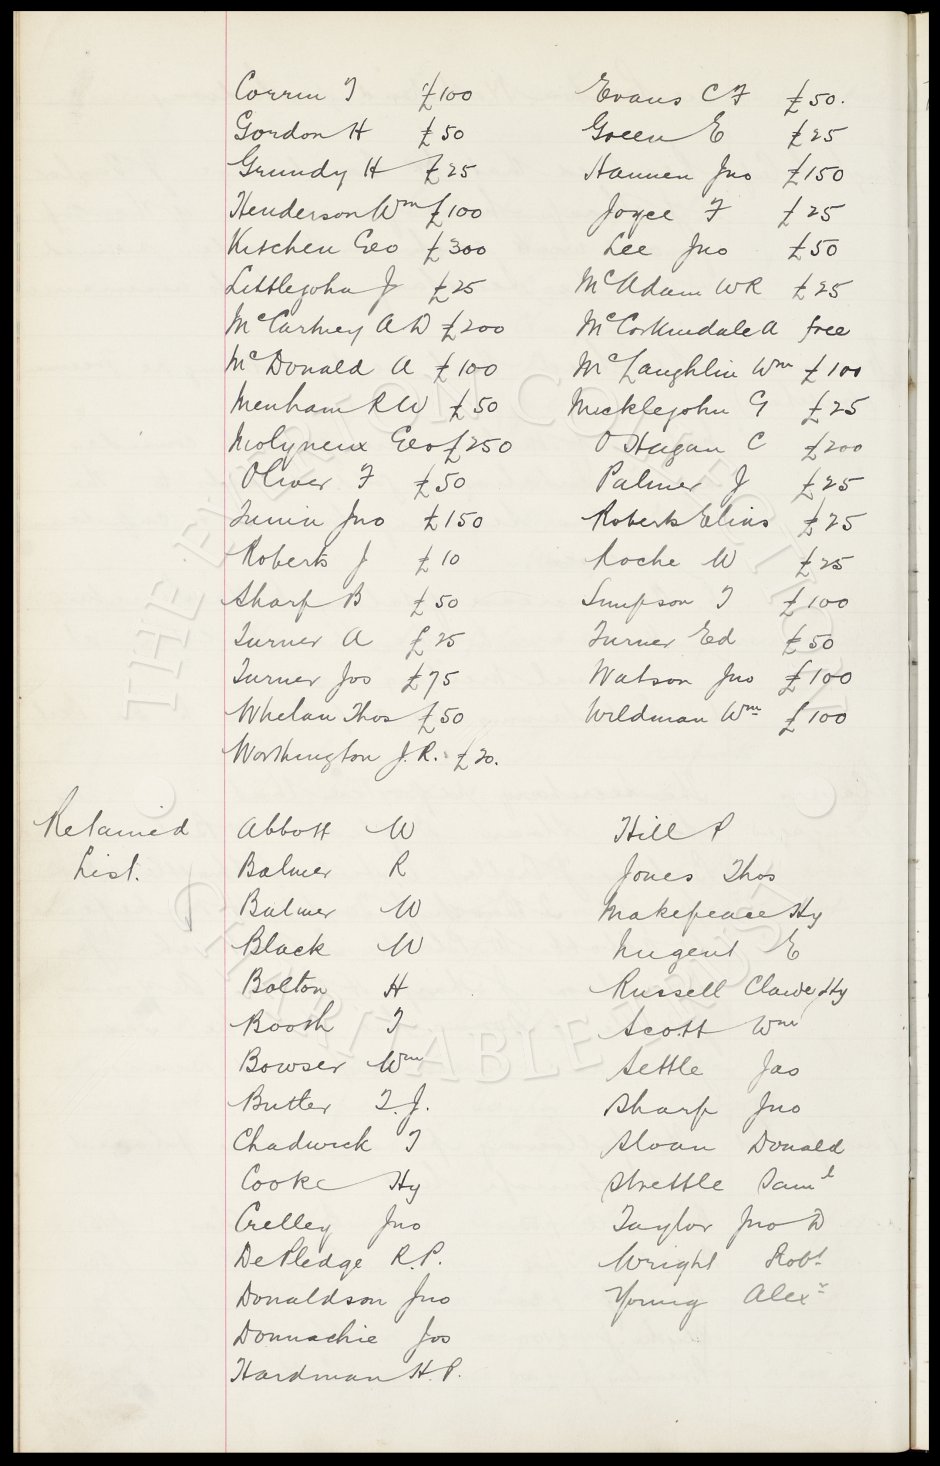 Corrin T £100 Evans C F £50.
Gordon H £50 Green E £25
Grundy H £25 Hannen Jno £150
Henderson Wm £100 Joyce F £25
Kitchen Geo £300 Lee Jno £50
Littlejohn J £25 McAdam W R £25
McCartney A D £200 McCorkindale A free
McDonald A £100 McLaughlin Wm £100
Menham R W £50 Micklejohn G £25
Molyneux Geo £250 O'Hagan C £200
Oliver F £50 Palmer J £25
Jno £150 Roberts Elias £25
Roberts J £10 Roche W £25
Sharp B £50 Simpson T £100
Turner A £25 Turner Ed £50
Turner Jos £75 Watson Jno £100
Whelan Thos £50 Wildman Wm £100
Worthington J.R. £20.
Retained Abbott W Hill P
List. Balmer R Jones Thos
Balmer W Makepeace Hy
Black W Nugent E
Bolton H Russell Hy
Booth T Scott Wm
Bowser Wm Settle Jas
Butler T.J. Sharp Jno
Chadwick T Sloan Donald
Cooke Hy Strettle Saml
Crelley Jno Taylor Jno D
DePledge R.P. Wright Robt
Donaldson Jno Young Alexr
Donnachie Jos
Hardman H.P.
THE EVERTON COLLECTION
CHARITABLE TRUST